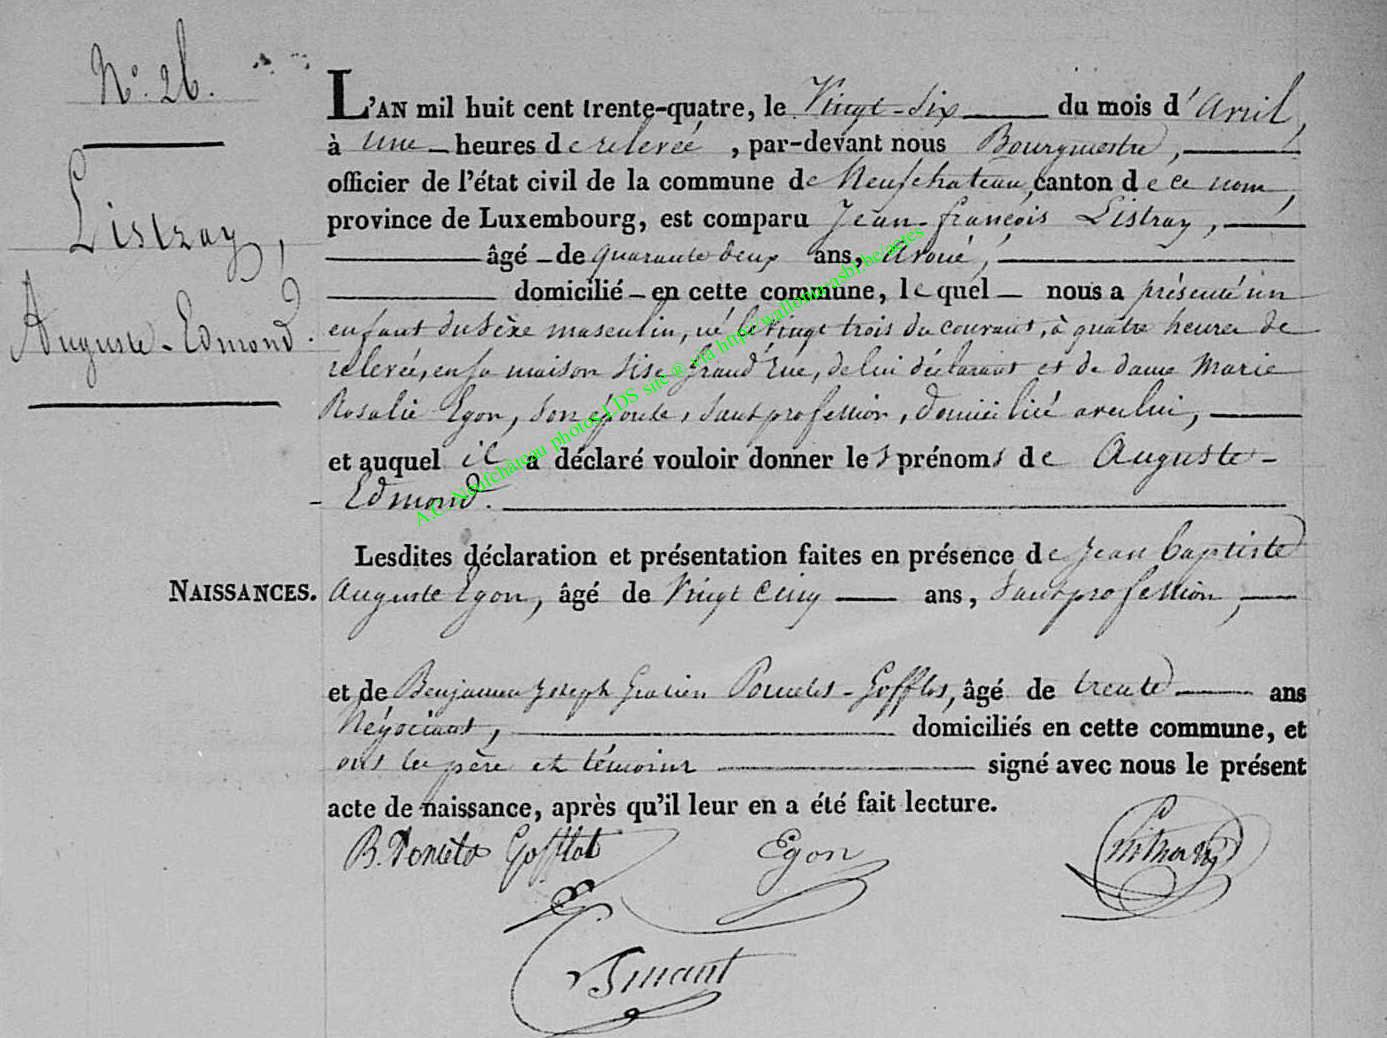 N.º 26.
Listray,
Auguste-Edmond.
L'AN mil huit cent trente-quatre, le Vingt-Six du mois d'Avril,
à une heures de relevée, par-devant nous Bourgmestre,
officier de l'état civil de la commune de Neufchateau, canton de ce nom,
province de Luxembourg, est comparu Jean-françois Listray,
âgé de quarante deux ans, Avoué,
domicilié en cette commune, lequel nous a présenté un
enfant du Sèxe masculin, né le vingt trois du courant, à quatre heures de
relevée, en sa maison sise Grand'Rue, de lui déclarant et de dame Marie
Rosalie Egon, son épouse, sans profession, domicilié avec lui,
et auquel il a déclaré vouloir donner les prénoms de Auguste-
-Edmond.
Lesdites déclaration et présentation faites en présence de Jean baptiste
NAISSANCES. Auguste Egon, âgé de Vingt Cinq ans, Sans profession,
et de Benjamin Joseph Gratien Poncelet-Gofflot, âgé de trente ans
Négociant, domiciliés en cette commune, et
ont les père et témoins signé avec nous le présent
acte de naissance, après qu'il leur en a été fait lecture.
B. Poncelet Gofflot Egon Listray
A.C. Neufchâteau photos LDS site ® via http://wallonia.asbl.be/actes